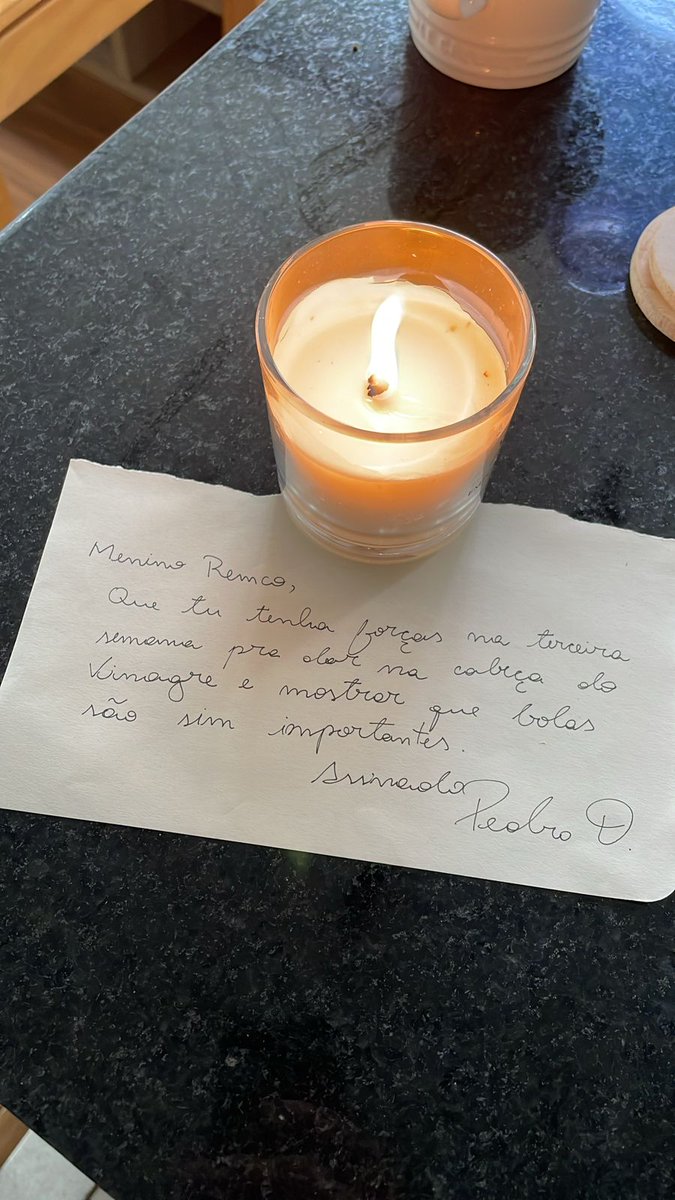 Menino Remco,
Que tu tenha forças na terceira
semana pra dar na cabeça do
Vinagre e mostrar que bolas
são sim importantes.
Assinado
Pedro D.